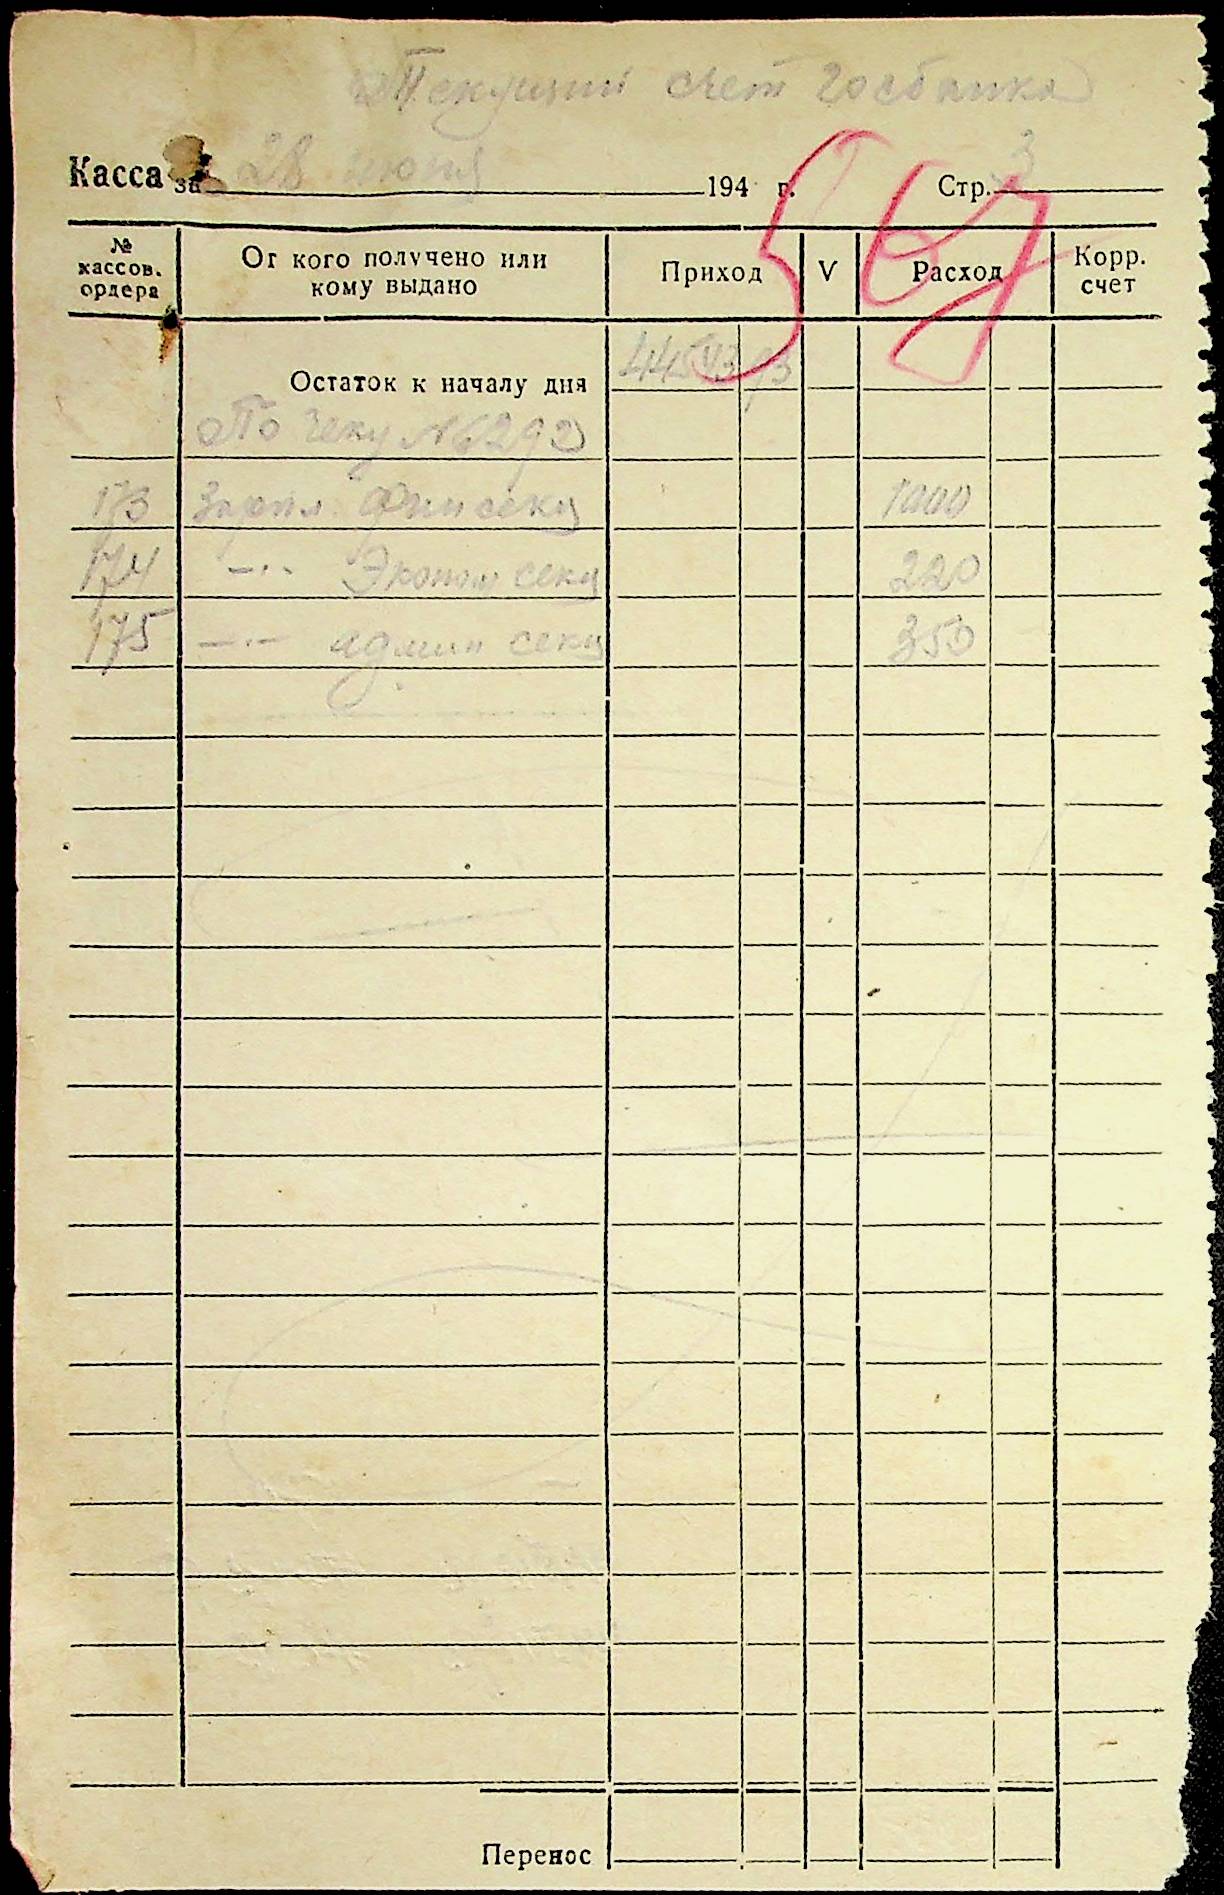 Текущий счет Госбанка
Касса за 28 июня 194 г. Стр. 3
№ кассов. ордера От кого получено или кому выдано Приход V Расход Корр. счет
Остаток к началу дня 93
По чеку №
173 Зарпл. Фин секц 1000
174 —·· Эконом секц 220
175 —·· админ секц 350
Перенос